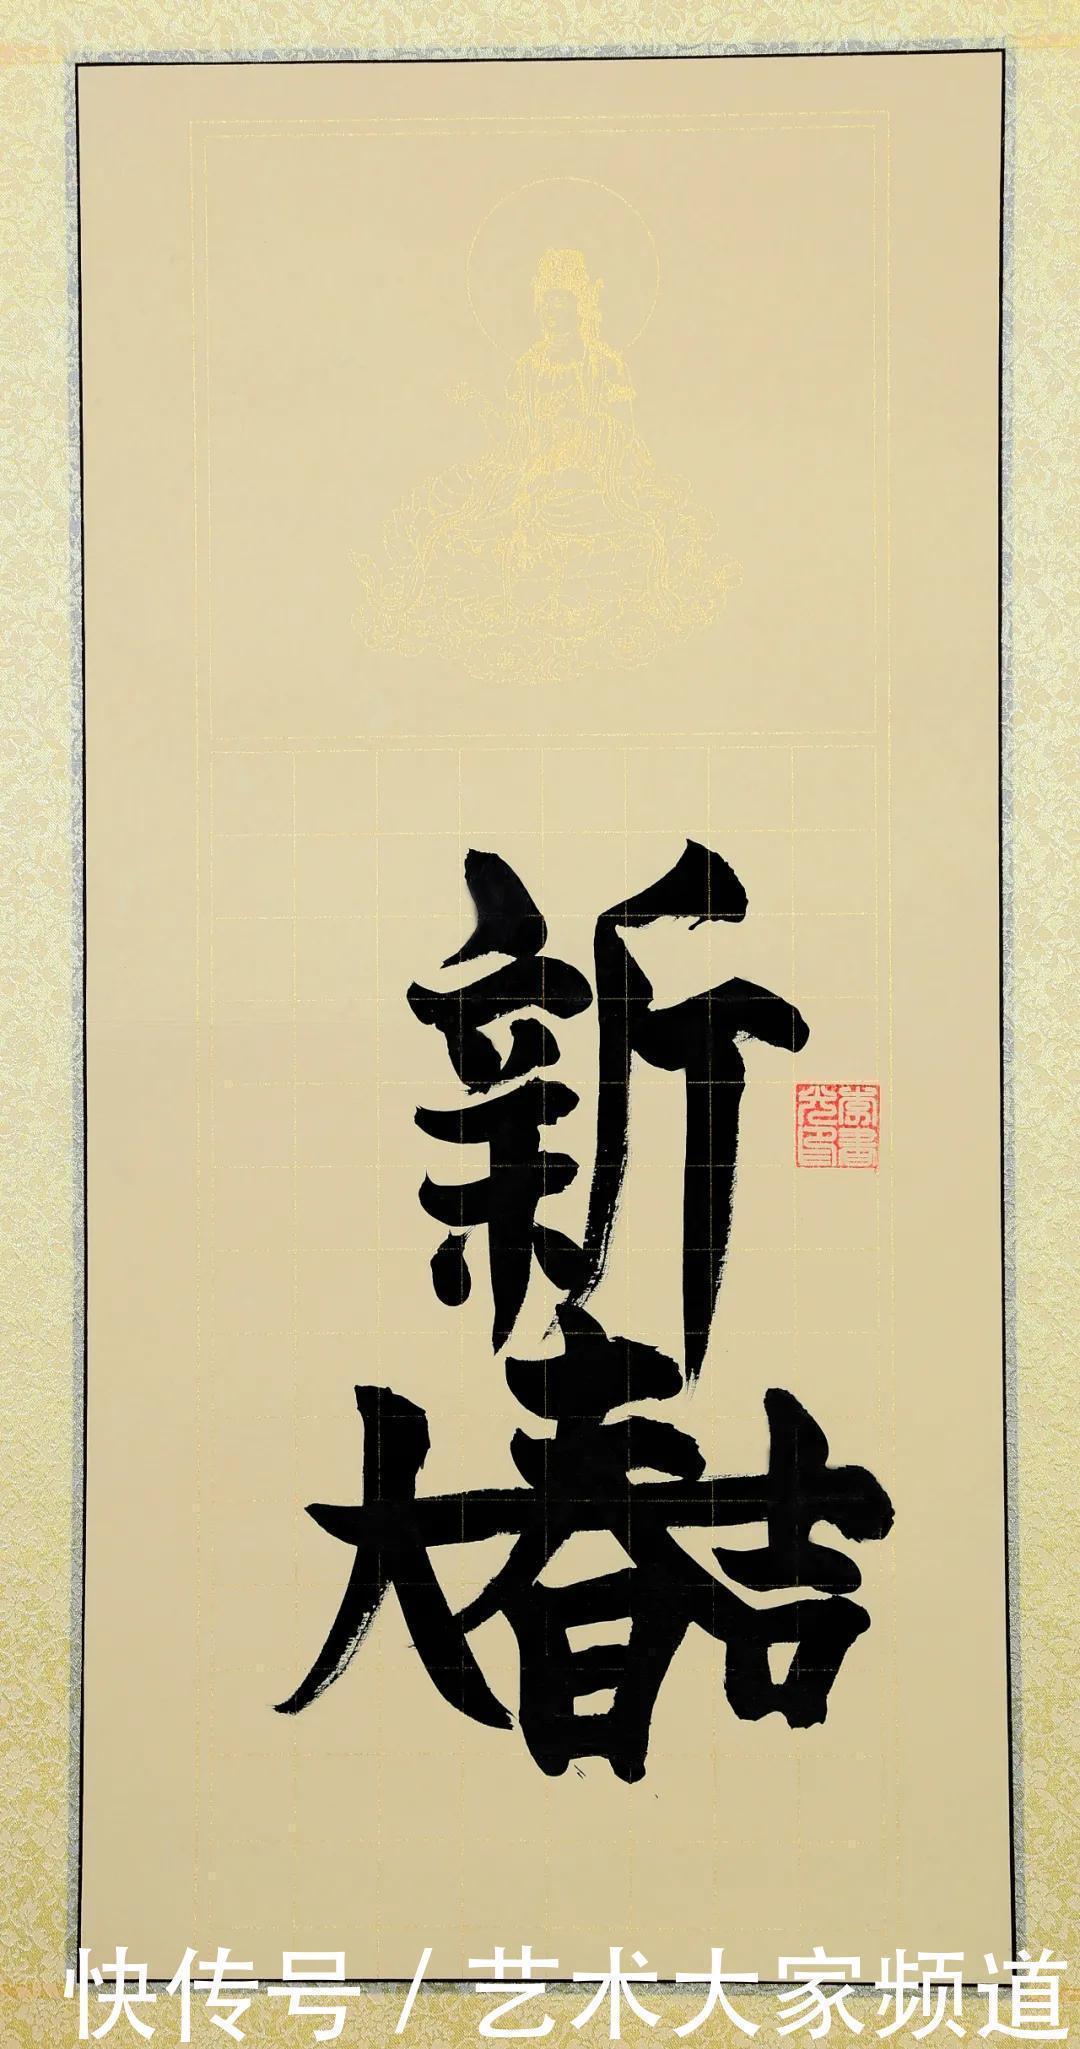 新
春
大吉
快传号 / 艺术大家频道